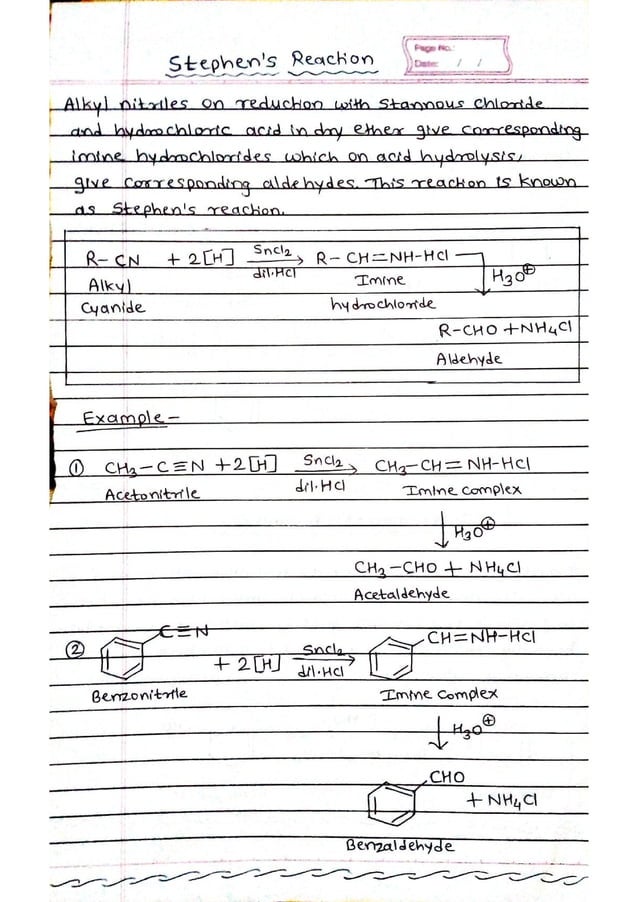 Stephen's Reaction
Page No.:
Date: / /
Alkyl nitriles on reduction with Stannous chloride
and hydrochloric acid in dry ether give corresponding
imine hydrochlorides which on acid hydrolysis,
give corresponding aldehydes. This reaction is known
as Stephen's reaction.
R-CN + 2[H] SnCl2 dil.HCl → R-CH=NH-HCl
Alkyl Imine H3O⊕
Cyanide hydrochloride
R-CHO + NH4Cl
Aldehyde
Example -
① CH3-C≡N + 2[H] SnCl2 dil.HCl → CH3-CH=NH-HCl
Acetonitrile Imine complex
↓ H3O⊕
CH3-CHO + NH4Cl
Acetaldehyde
② C≡N + 2[H] SnCl2 dil.HCl → CH=NH-HCl
Benzonitrile Imine complex
↓ H3O⊕
CHO
+ NH4Cl
Benzaldehyde